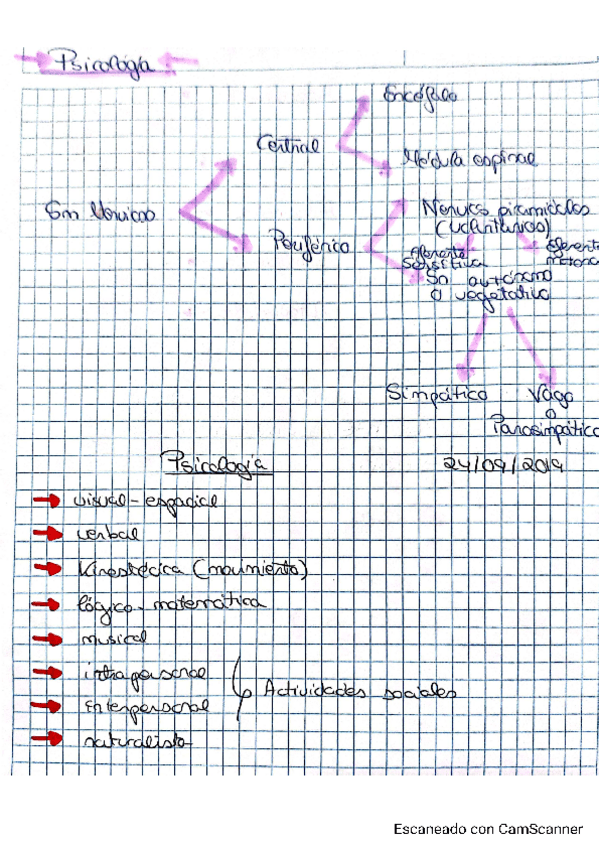 Psicología
Encéfalo
Central
Médula espinal
Sn Nervioso
Nervios piramidales
(voluntarios)
Periférico
Aferente
Sensitiva
Eferente
motora
Sn autónomo
o vegetativo
Simpático
Vago
o
Parasimpático
Psicología
24/09/2019
visual-espacial
verbal
Kinestécica (movimiento)
lógico-matemática
musical
intrapersonal
Interpersonal
Actividades sociales
naturalista
Escaneado con CamScanner